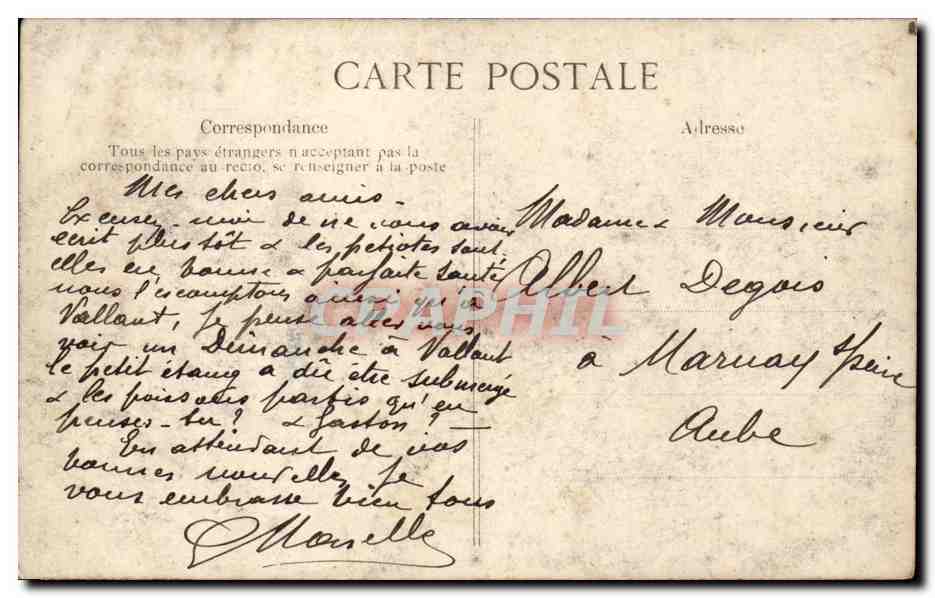 CARTE POSTALE
Correspondance
Tous les pays étrangers n'acceptant pas la
correspondance au recto, se renseigner à la poste
Mes chers amis -
Excusez moi de ne vous avoir
écrit plus tôt & les petiotes sont,
elles en bonne & parfaite santé
nous l'escomptons ainsi qu'à
Vallant, je pense aller vous
voir un Dimanche à Vallant
le petit étang a dû être submergé
& les poissons partis qu'en
penses-tu ? & Gaston ? —
En attendant de vos
bonnes nouvelles, je
vous embrasse bien tous
Adresse
Madame & Monsieur
Albert Degois
à Marnay s/Seine
Aube
CPAPHIL